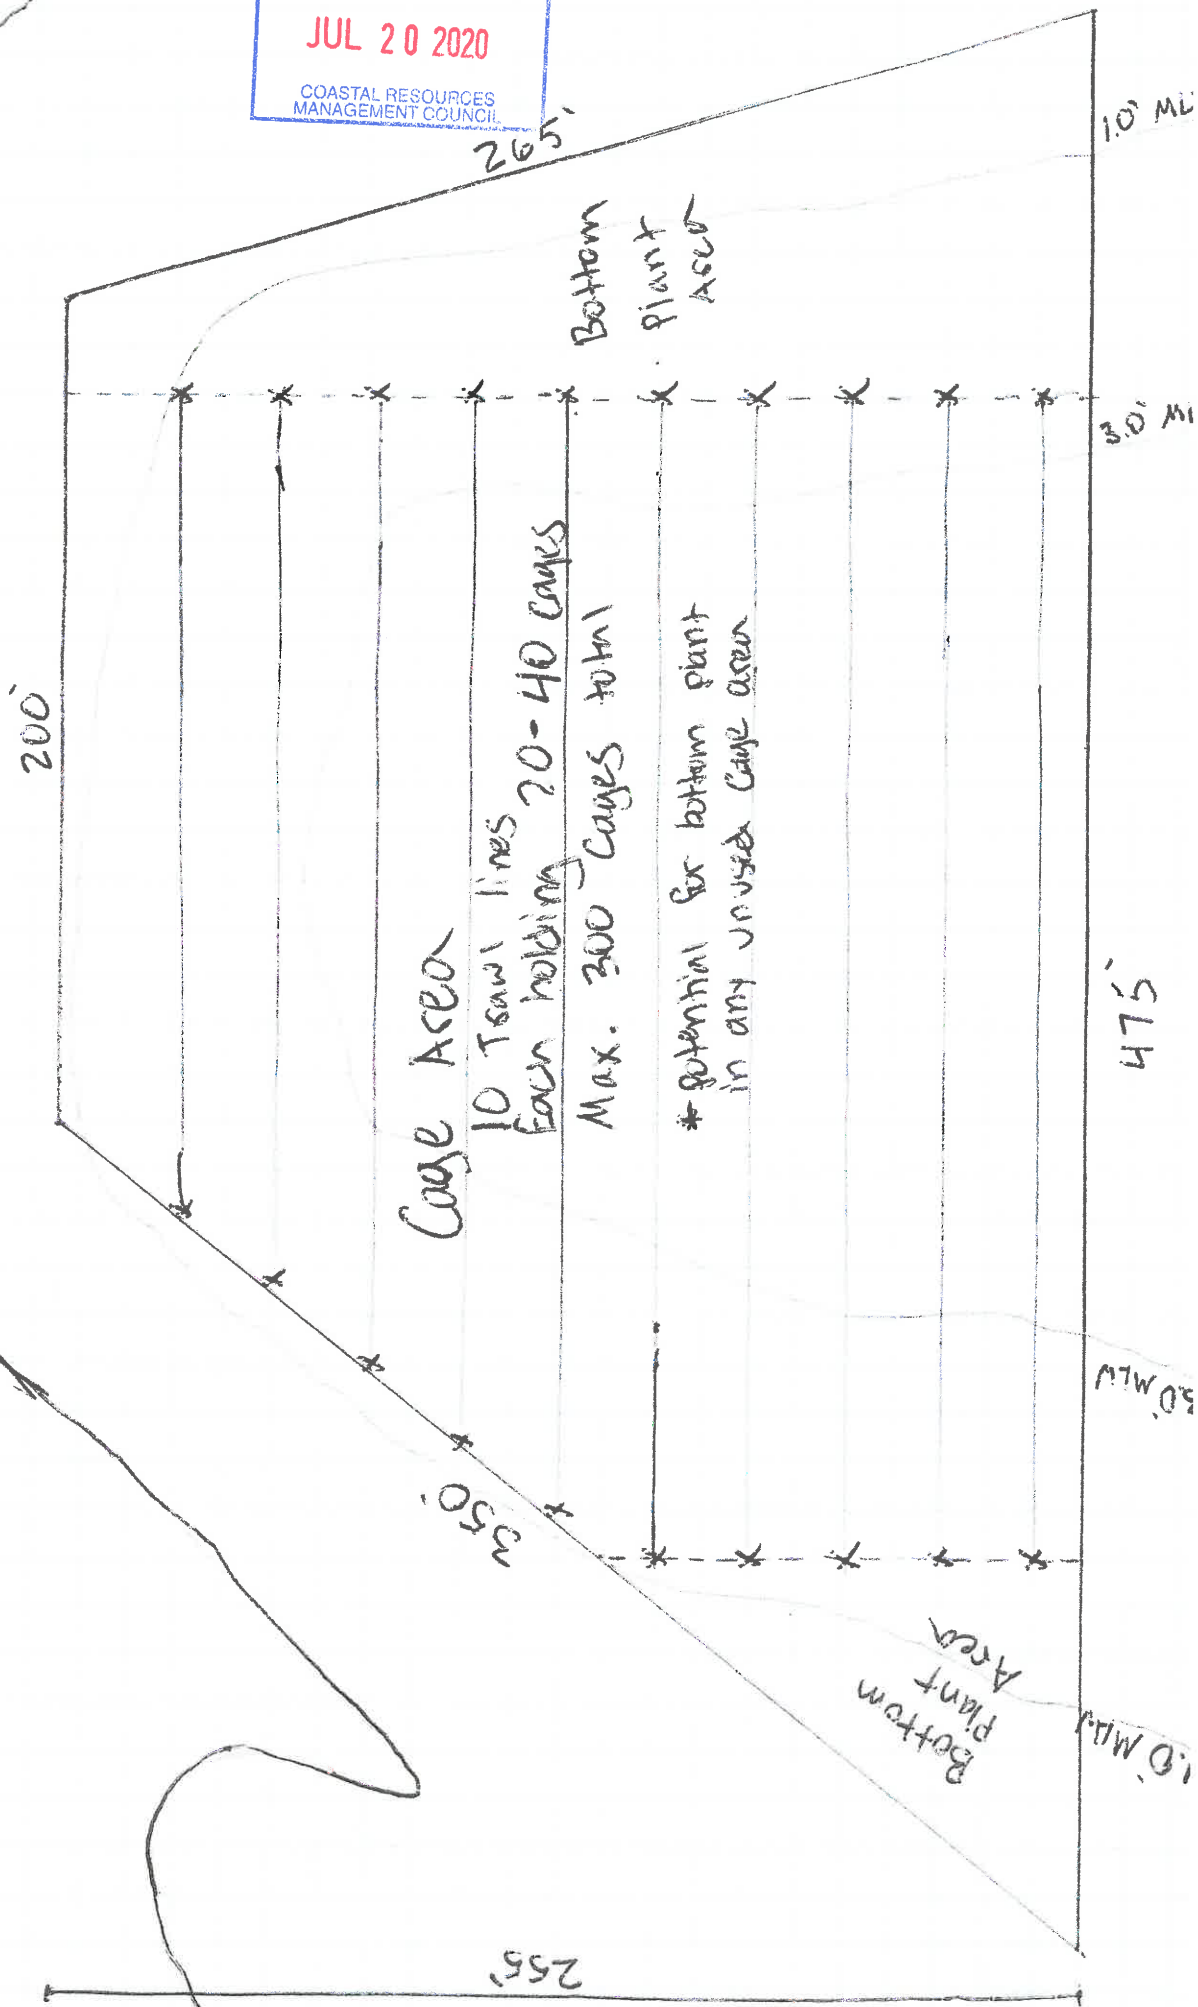 JUL 20 2020
COASTAL RESOURCES
MANAGEMENT COUNCIL
265'
1.0' ML
Bottom
Plant
Area
3.0' ML
200'
Cage Area
10 Trawl lines
Each holding 20-40 cages
Max. 300 Cages total
* potential for bottom plant
in any unused cage area
475'
350'
3.0' MLW
Bottom
Plant
Area
1.0' MLW
255'